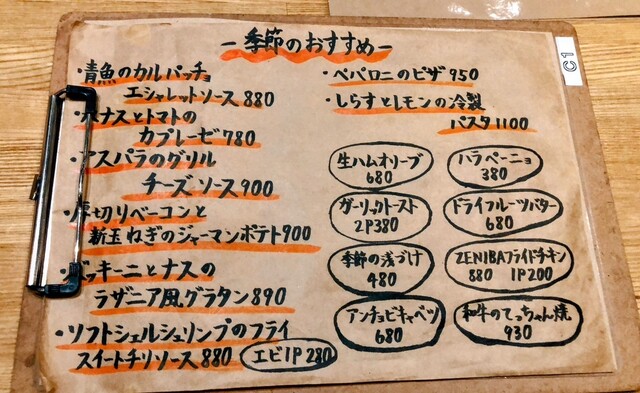 ー季節のおすすめー
・青魚のカルパッチョ
エシャレットソース 880
ナスとトマトの
カプレーゼ 780
アスパラのグリル
チーズソース 900
厚切りベーコンと
新玉ねぎのジャーマンポテト 900
ッキーニとナスの
ラザニア風グラタン 890
・ソフトシェルシュリンプのフライ
スイートチリソース 880 エビ1P 280
・ペパロニのピザ 950
・しらすとレモンの冷製
パスタ 1100
生ハムオリーブ
680
ハラペーニョ
380
ガーリックトースト
2P380
ドライフルーツバター
680
季節の浅づけ
480
ZENIBAフライドチキン
880 1P200
アンチョビキャベツ
680
和牛のてっちゃん焼
930
C1